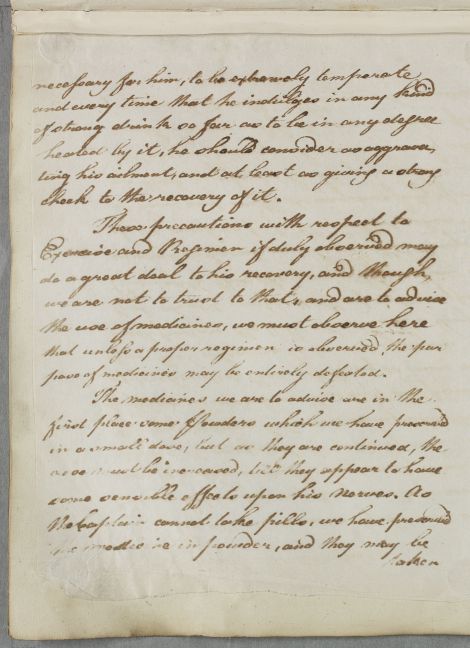 necessary for him, to be extremely temperate,
and every time that he indulges in any kind
of strong drink so far as to be in any degree
heated by it, he should consider as aggrava
ting his ailment, and at least as giving a strong
check to the recovery of it.
These precautions with respect to
Exercise and Regimen if duly observed may
do a great deal to his recovery, and though,
we are not to trust to that, and are to advise
the use of medicines, we must observe here
that unless a proper regimen is observed, the pur
pose of medicines may be entirely defeated.
The medicines we are to advise are in the
first place some Powders which we have prescrived
in a small dose, but as they are continued, the
dose must be increased, till they appear to have
some sensible effects upon his nerves. As
the Captain cannot take pills, we have prescrived
the medicine in powder, and they may be
taken